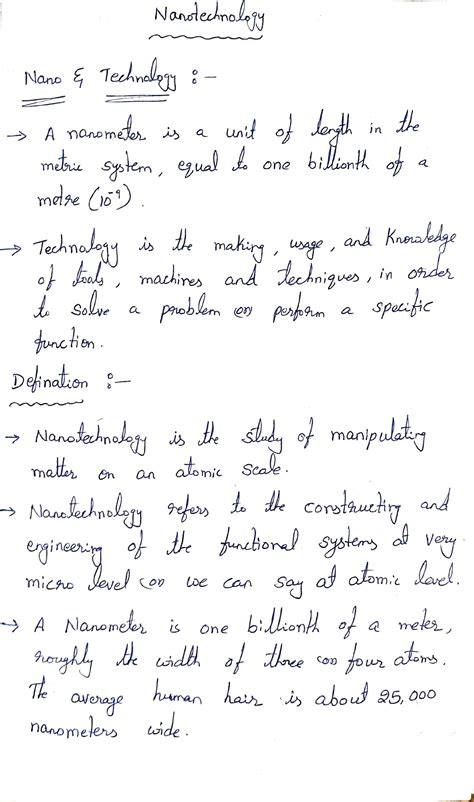 Nanotechnology
Nano & Technology :-
→ A nanometer is a unit of length in the
metric system, equal to one billionth of a
metre (10⁻⁹).
→ Technology is the making, usage, and Knowledge
of tools, machines and techniques, in order
to solve a problem (or) perform a specific
function.
Defination :-
→ Nanotechnology is the study of manipulating
matter on an atomic scale.
→ Nanotechnology refers to the constructing and
engineering of the functional systems at very
micro level (or) we can say at atomic level.
→ A Nanometer is one billionth of a meter,
roughly the width of three (or) four atoms.
The average human hair is about 25,000
nanometers wide.